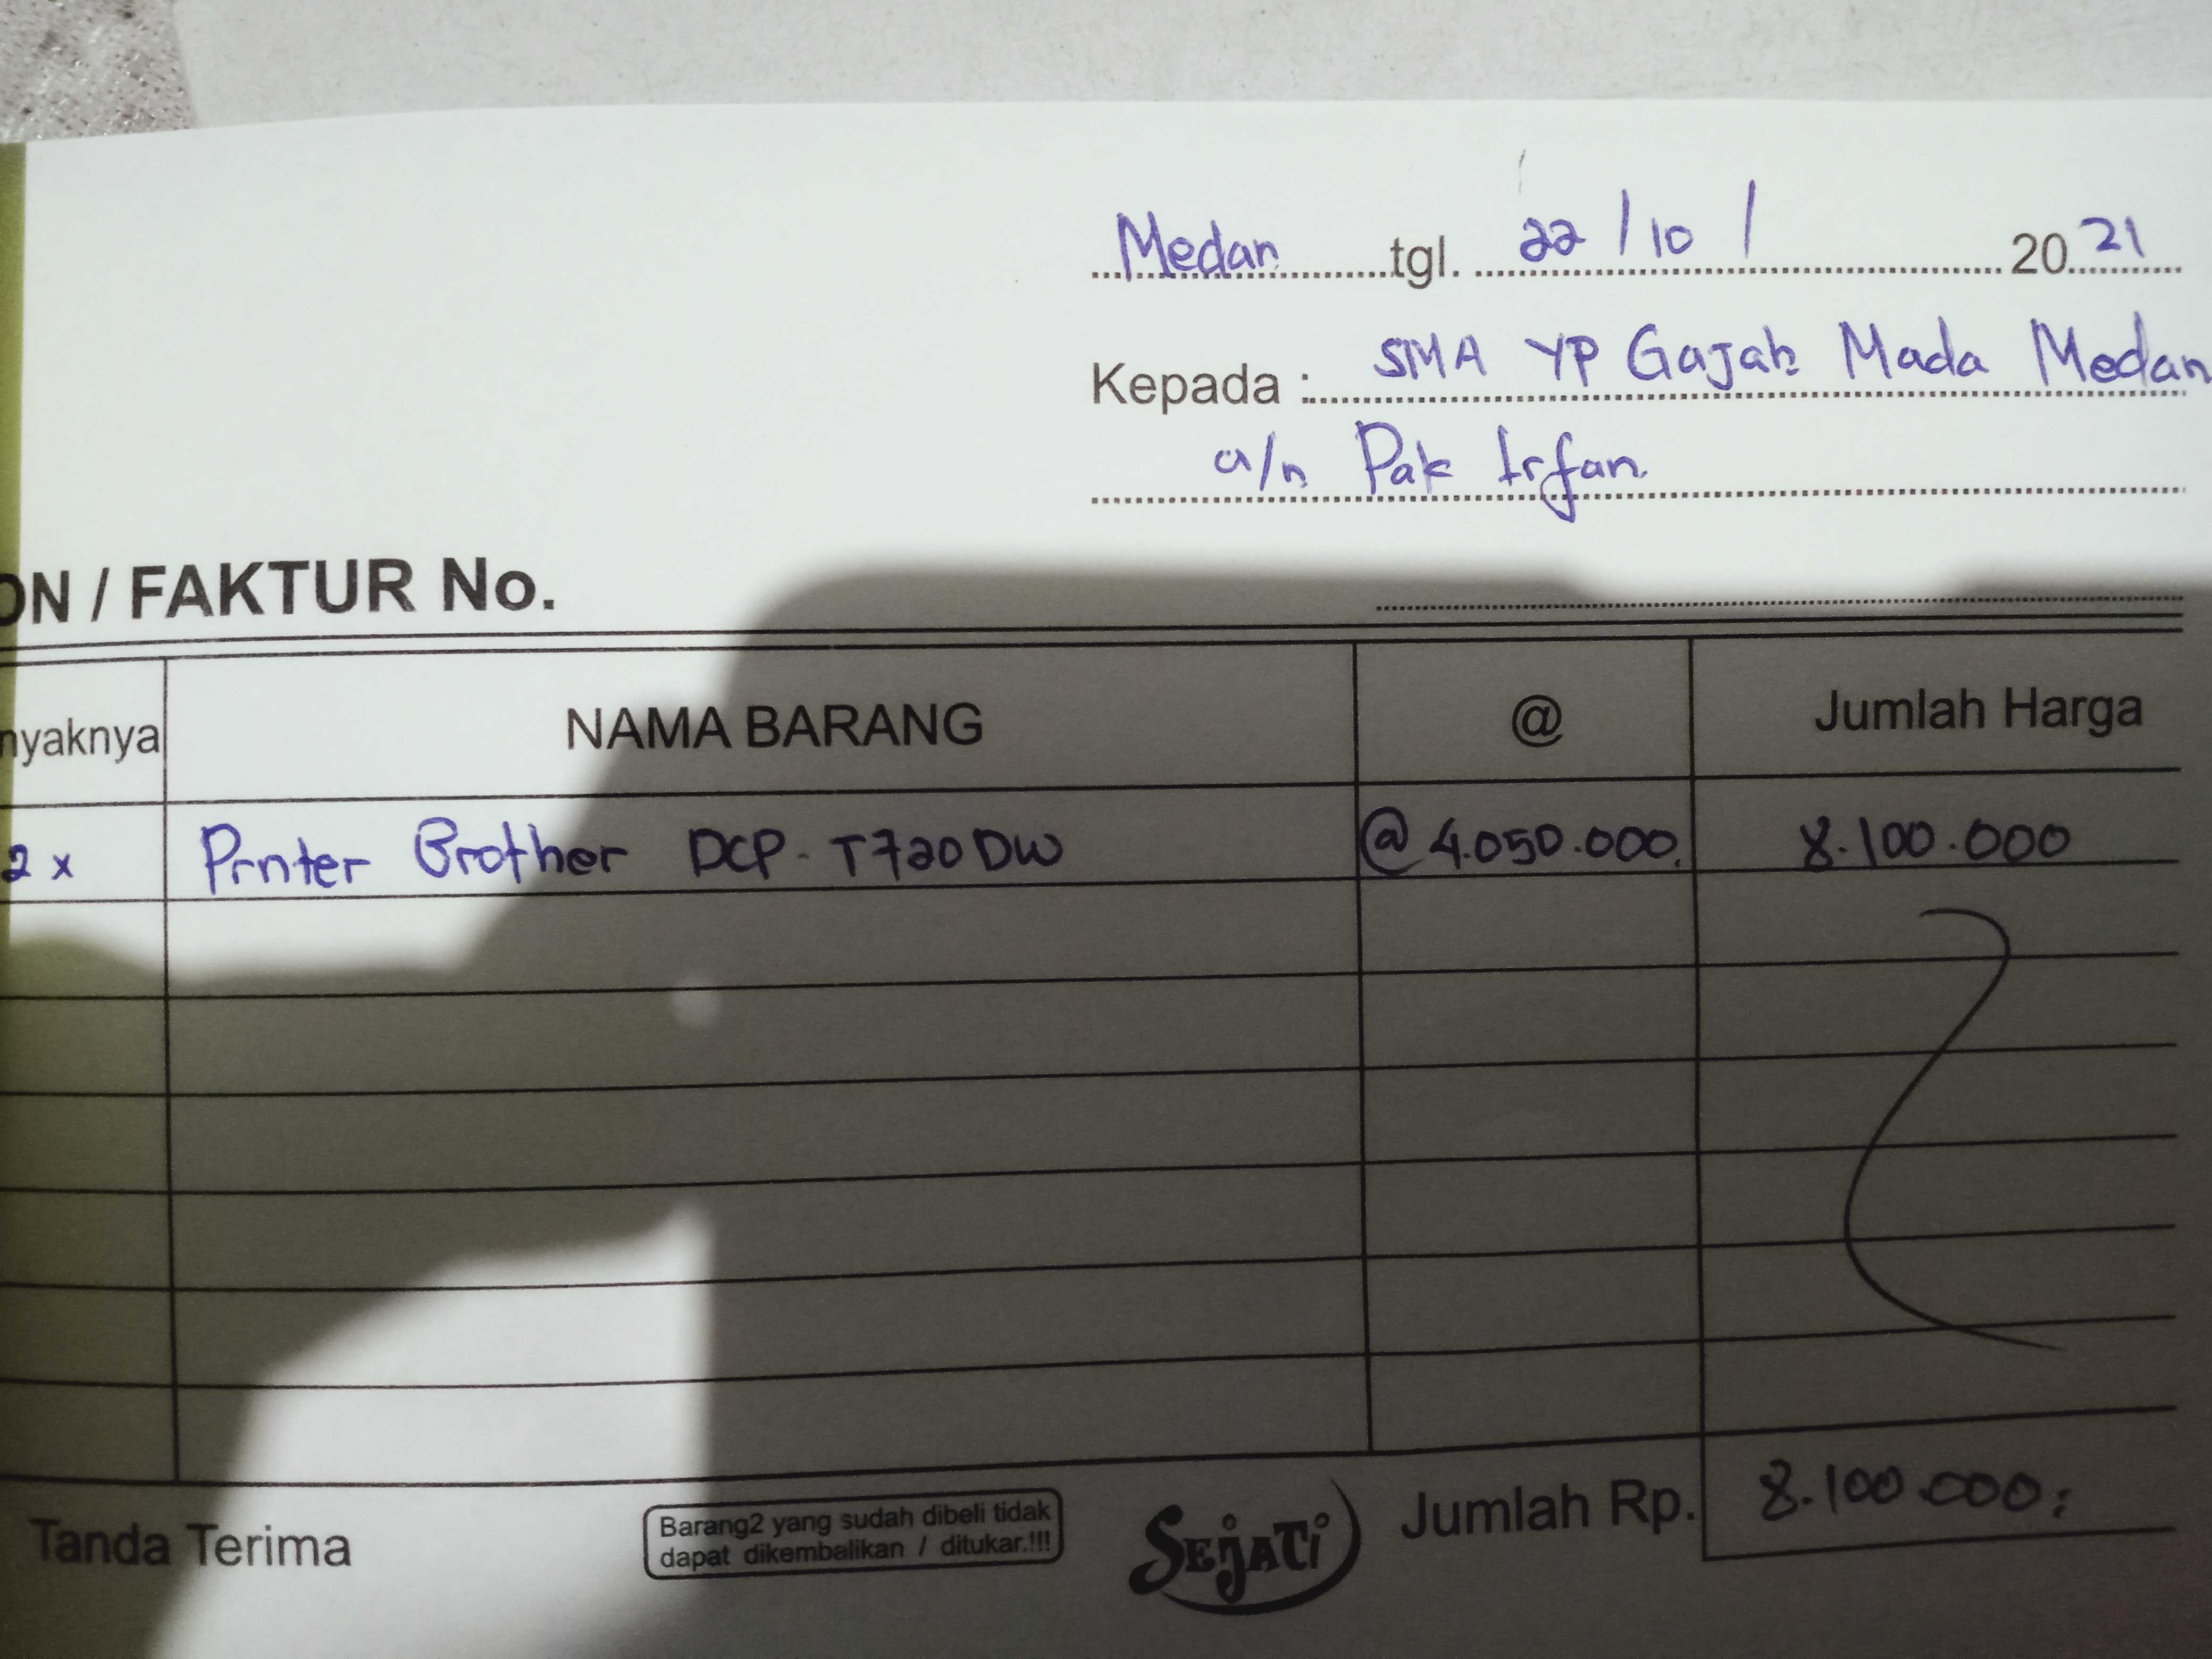 Medan tgl. 22/10/ 2021
Kepada : SMA YP Gajah Mada Medan
a/n Pak Irfan
ON / FAKTUR No.
nyaknya NAMA BARANG @ Jumlah Harga
2 x Prnter Brother DCP-T720DW @ 4.050.000, 8.100.000
Tanda Terima
Barang2 yang sudah dibeli tidak
dapat dikembalikan / ditukar.!!!
SEJATI
Jumlah Rp. 8.100.000;